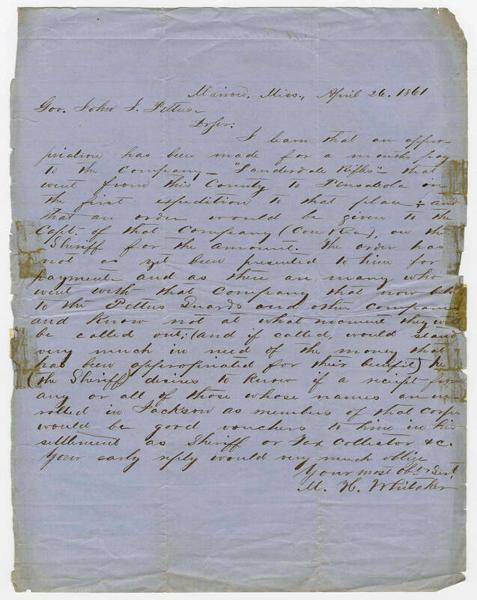 Marion, Miss., April 26, 1861
Gov. John J. Pettus
Dr Sir:
I learn that an appro-
priation has been made for a months pay
to the Company - "Lauderdale Rifles" that
went from this County to Pensacola on
the first expedition to that place & and
that an order would be given to the
Capt. of that Company on the
Sheriff for the amount. The order has
not as yet been presented to him for
payment and as there are many who
went with that Company that now
to the Pettus Guards and other Companies
and know not at what moment they will
be called out; (and if called, would stand
very much in need of the money that
has been appropriated for their benefit) he
the Sheriff desires to know if a receipt from
any or all of those whose names are en-
rolled in Jackson as members of that Corps
would be good vouchers to him in his
settlment as Sheriff or Tax Collector &c.
Your early reply would very much oblige
Your most Obt Servt
M. H. Whitaker